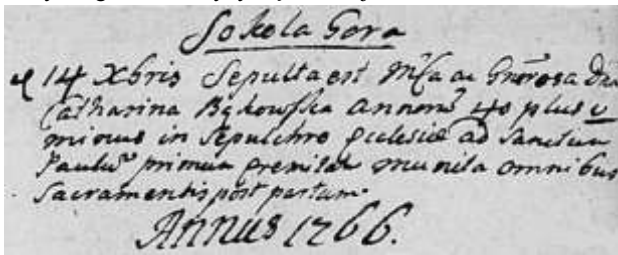 Sokola Gora
14 Xbris Sepulta est Mfca ac Gnrosa Dna
Catharina Bykowska Annorũ 40 plus v
minus in Sepulchro Ecclesiæ ad Sanctum
Paulũ primum Eremitam munita omnibus
Sacramentis post partum.
Annus 1766.